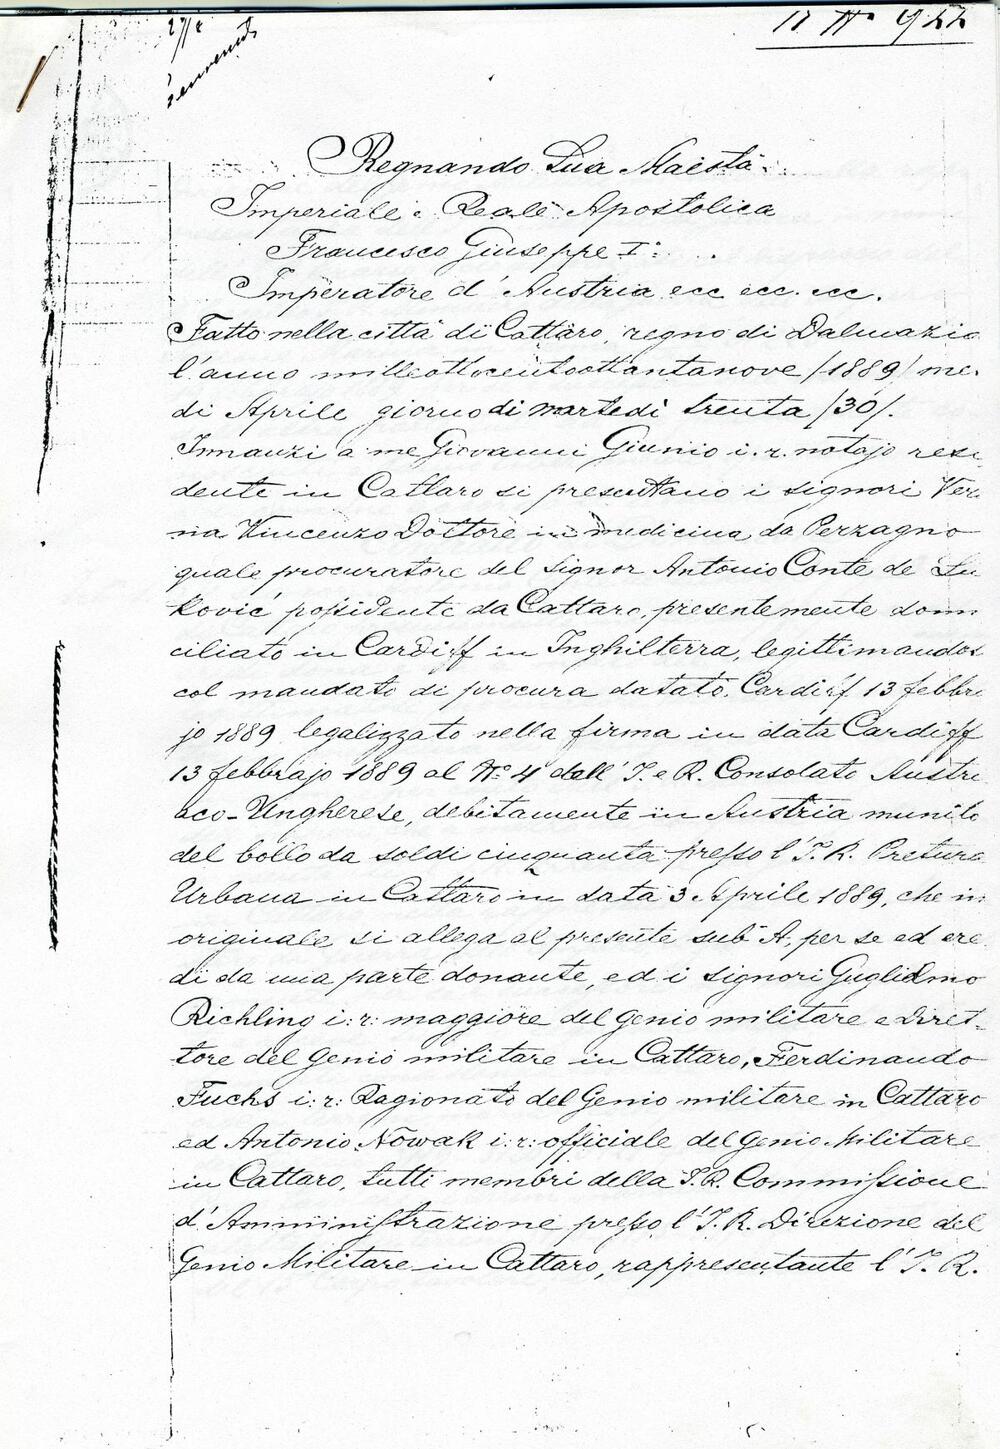 Regnando Sua Maestà
Imperiale e Reale Apostolica
Francesco Giuseppe I:
Imperatore d'Austria ecc ecc. ecc.
Fatto nella città di Cattaro, regno di Dalmazia
l'anno milleottocentoottantanove /1889/ me.
di Aprile giorno di martedì trenta /30/.
Innanzi a me Giovanni Giunio i. r. notajo resi
dente in Cattaro si presentano i signori Ver
na Vincenzo Dottore in medicina, da Perzagno
quale procuratore del Signor Antonio Conte de Lu
ković possidente da Cattaro, presentemente domi
ciliato in Cardiff in Inghilterra, legittimandos
col mandato di procura datato Cardiff 13 febbra
jo 1889 legalizzato nella firma in data Cardiff
13 febbrajo 1889 al No 4 dall' I. e R. Consolato Austri
aco-Ungherese, debitamente in Austria munito
del bollo da soldi cinquanta presso l'I. R. Pretura
Urbana in Cattaro in data 3 Aprile 1889, che in
originale si allega al presente sub A, per se ed ere
di da una parte donante, ed i signori Guglielmo
Richling i: r: maggiore del Genio militare e Diret-
tore del Genio militare in Cattaro, Ferdinando
Fuchs i: r: Ragionato del Genio militare in Cattaro
ed Antonio Nowak i: r: officiale del Genio Militare
in Cattaro, tutti membri della I. R. Commissione
d'Amministrazione presso l'I. R. Direzione del
Genio Militare in Cattaro, rappresentante l'I. R.